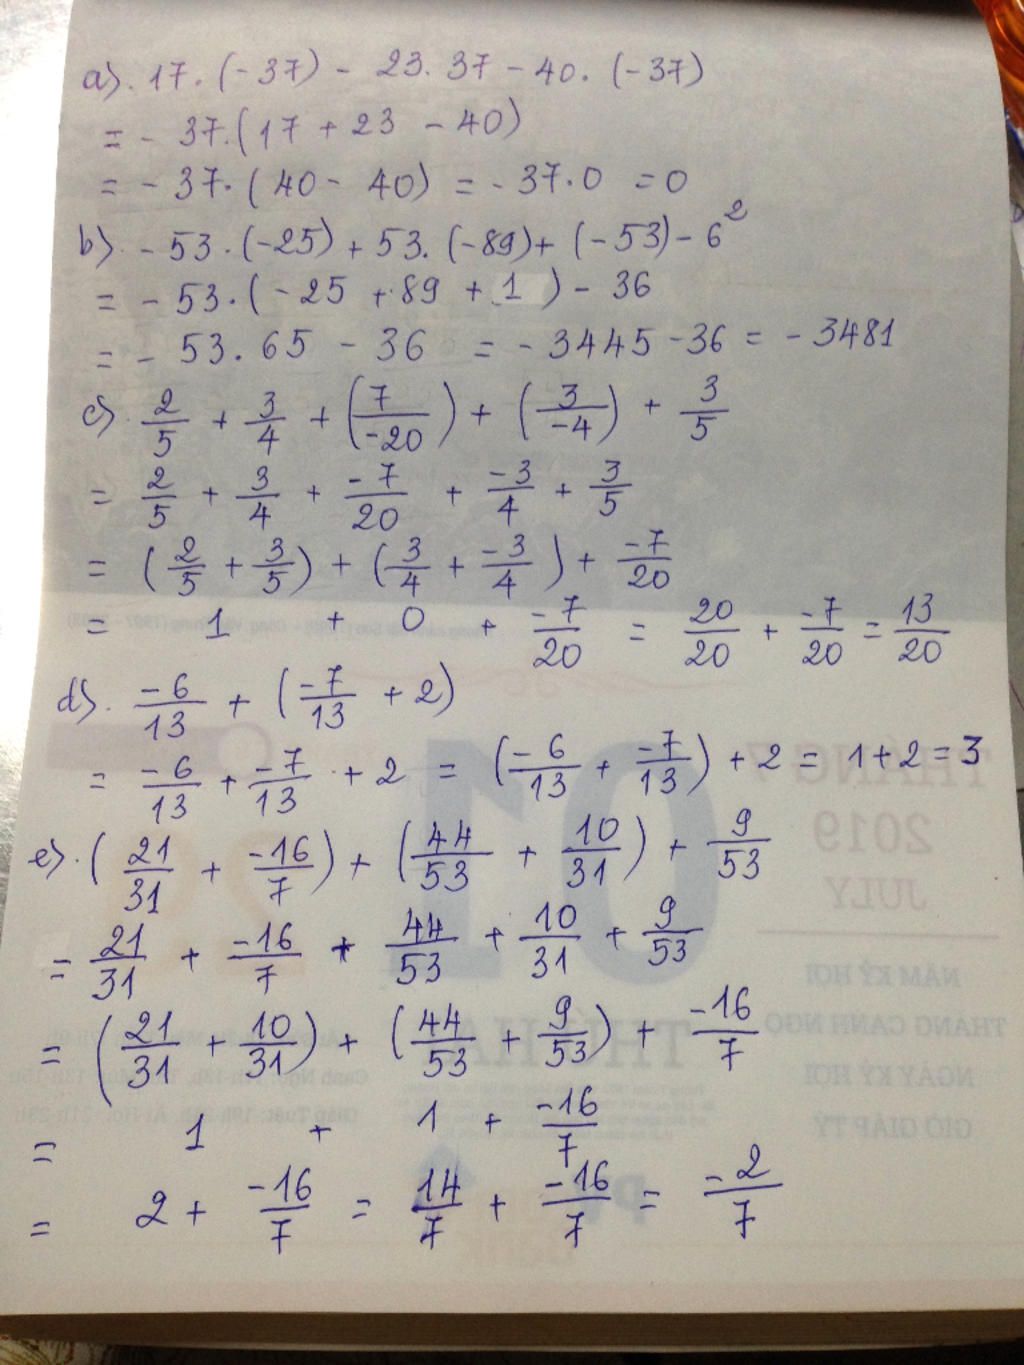 a). 17.(-37) - 23.37 - 40.(-37)
= - 37.(17 + 23 - 40)
= - 37.(40 - 40) = - 37.0 = 0
b). - 53.(-25) + 53.(-89) + (-53) - 6²
= - 53.(-25 + 89 + 1) - 36
= - 53.65 - 36 = - 3445 - 36 = - 3481
c). 2/5 + 3/4 + (7/-20) + (3/-4) + 3/5
= 2/5 + 3/4 + -7/20 + -3/4 + 3/5
= (2/5 + 3/5) + (3/4 + -3/4) + -7/20
= 1 + 0 + -7/20 = 20/20 + -7/20 = 13/20
d). -6/13 + (-7/13 + 2)
= -6/13 + -7/13 + 2 = (-6/13 + -7/13) + 2 = 1 + 2 = 3
e). (21/31 + -16/7) + (44/53 + 10/31) + 9/53
= 21/31 + -16/7 + 44/53 + 10/31 + 9/53
= (21/31 + 10/31) + (44/53 + 9/53) + -16/7
= 1 + 1 + -16/7
= 2 + -16/7 = 14/7 + -16/7 = -2/7
01
THÁNG 7
2019
JULY
NĂM KỶ HỢI
THÁNG CANH NGỌ
NGÀY KỶ HỢI
GIỜ GIÁP TÝ
THỨ HAI